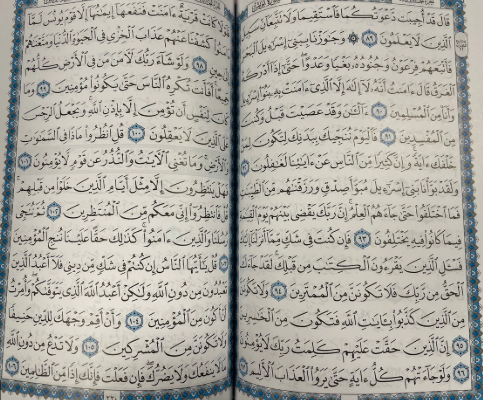 قَالَ قَدْ أُجِيبَت دَّعْوَتُكُمَا فَٱسْتَقِيمَا وَلَا تَتَّبِعَآنِّ سَبِيلَ
ٱلَّذِينَ لَا يَعْلَمُونَ ٨٩ ۞ وَجَٰوَزْنَا بِبَنِىٓ إِسْرَٰٓءِيلَ ٱلْبَحْرَ
فَأَتْبَعَهُمْ فِرْعَوْنُ وَجُنُودُهُۥ بَغْيًا وَعَدْوًا حَتَّىٰٓ إِذَآ أَدْرَكَهُ
ٱلْغَرَقُ قَالَ ءَامَنتُ أَنَّهُۥ لَآ إِلَٰهَ إِلَّا ٱلَّذِىٓ ءَامَنَتْ بِهِۦ بَنُوٓا۟ إِسْرَٰٓءِيلَ
وَأَنَا۠ مِنَ ٱلْمُسْلِمِينَ ٩٠ ءَآلْـَٰٔنَ وَقَدْ عَصَيْتَ قَبْلُ وَكُنتَ
مِنَ ٱلْمُفْسِدِينَ ٩١ فَٱلْيَوْمَ نُنَجِّيكَ بِبَدَنِكَ لِتَكُونَ لِمَنْ
خَلْفَكَ ءَايَةً وَإِنَّ كَثِيرًا مِّنَ ٱلنَّاسِ عَنْ ءَايَٰتِنَا لَغَٰفِلُونَ ٩٢
وَلَقَدْ بَوَّأْنَا بَنِىٓ إِسْرَٰٓءِيلَ مُبَوَّأَ صِدْقٍ وَرَزَقْنَٰهُم مِّنَ ٱلطَّيِّبَٰتِ
فَمَا ٱخْتَلَفُوا۟ حَتَّىٰ جَآءَهُمُ ٱلْعِلْمُ إِنَّ رَبَّكَ يَقْضِى بَيْنَهُمْ يَوْمَ ٱلْقِيَٰمَةِ
فِيمَا كَانُوا۟ فِيهِ يَخْتَلِفُونَ ٩٣ فَإِن كُنتَ فِى شَكٍّ مِّمَّآ أَنزَلْنَآ إِلَيْكَ
فَسْـَٔلِ ٱلَّذِينَ يَقْرَءُونَ ٱلْكِتَٰبَ مِن قَبْلِكَ لَقَدْ جَآءَكَ
ٱلْحَقُّ مِن رَّبِّكَ فَلَا تَكُونَنَّ مِنَ ٱلْمُمْتَرِينَ ٩٤ وَلَا تَكُونَنَّ
مِنَ ٱلَّذِينَ كَذَّبُوا۟ بِـَٔايَٰتِ ٱللَّهِ فَتَكُونَ مِنَ ٱلْخَٰسِرِينَ
٩٥ إِنَّ ٱلَّذِينَ حَقَّتْ عَلَيْهِمْ كَلِمَتُ رَبِّكَ لَا يُؤْمِنُونَ
٩٦ وَلَوْ جَآءَتْهُمْ كُلُّ ءَايَةٍ حَتَّىٰ يَرَوُا۟ ٱلْعَذَابَ ٱلْأَلِيمَ ٩٧
فَلَوْلَا كَانَتْ قَرْيَةٌ ءَامَنَتْ فَنَفَعَهَآ إِيمَٰنُهَآ إِلَّا قَوْمَ يُونُسَ لَمَّآ
ءَامَنُوا۟ كَشَفْنَا عَنْهُمْ عَذَابَ ٱلْخِزْىِ فِى ٱلْحَيَوٰةِ ٱلدُّنْيَا وَمَتَّعْنَٰهُمْ
إِلَىٰ حِينٍ ٩٨ وَلَوْ شَآءَ رَبُّكَ لَءَامَنَ مَن فِى ٱلْأَرْضِ كُلُّهُمْ
جَمِيعًا أَفَأَنتَ تُكْرِهُ ٱلنَّاسَ حَتَّىٰ يَكُونُوا۟ مُؤْمِنِينَ ٩٩ وَمَا
كَانَ لِنَفْسٍ أَن تُؤْمِنَ إِلَّا بِإِذْنِ ٱللَّهِ وَيَجْعَلُ ٱلرِّجْسَ
عَلَى ٱلَّذِينَ لَا يَعْقِلُونَ ١٠٠ قُلِ ٱنظُرُوا۟ مَاذَا فِى ٱلسَّمَٰوَٰتِ
وَٱلْأَرْضِ وَمَا تُغْنِى ٱلْـَٔايَٰتُ وَٱلنُّذُرُ عَن قَوْمٍ لَّا يُؤْمِنُونَ ١٠١
فَهَلْ يَنتَظِرُونَ إِلَّا مِثْلَ أَيَّامِ ٱلَّذِينَ خَلَوْا۟ مِن قَبْلِهِمْ
قُلْ فَٱنتَظِرُوٓا۟ إِنِّى مَعَكُم مِّنَ ٱلْمُنتَظِرِينَ ١٠٢ ثُمَّ نُنَجِّى
رُسُلَنَا وَٱلَّذِينَ ءَامَنُوا۟ كَذَٰلِكَ حَقًّا عَلَيْنَا نُنجِ ٱلْمُؤْمِنِينَ
١٠٣ قُلْ يَٰٓأَيُّهَا ٱلنَّاسُ إِن كُنتُمْ فِى شَكٍّ مِّن دِينِى فَلَآ أَعْبُدُ ٱلَّذِينَ
تَعْبُدُونَ مِن دُونِ ٱللَّهِ وَلَٰكِنْ أَعْبُدُ ٱللَّهَ ٱلَّذِى يَتَوَفَّىٰكُمْ وَأُمِرْتُ
أَنْ أَكُونَ مِنَ ٱلْمُؤْمِنِينَ ١٠٤ وَأَنْ أَقِمْ وَجْهَكَ لِلدِّينِ حَنِيفًا
وَلَا تَكُونَنَّ مِنَ ٱلْمُشْرِكِينَ ١٠٥ وَلَا تَدْعُ مِن دُونِ ٱللَّهِ
مَا لَا يَنفَعُكَ وَلَا يَضُرُّكَ فَإِن فَعَلْتَ فَإِنَّكَ إِذًا مِّنَ ٱلظَّٰلِمِينَ ١٠٦